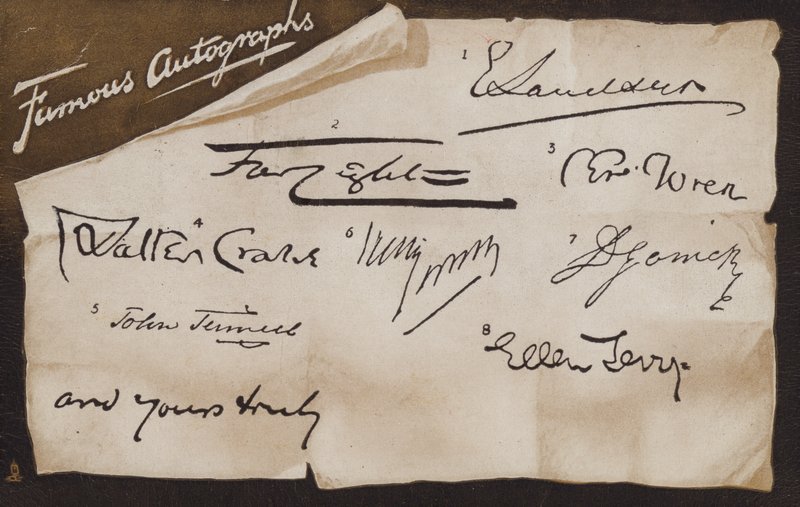 Famous Autographs
1 E Landseer
2
3 Chr. Wren
4 Walter Crane
6
7 D Garrick
5 John Tenniel
8 Ellen Terry
and yours truly